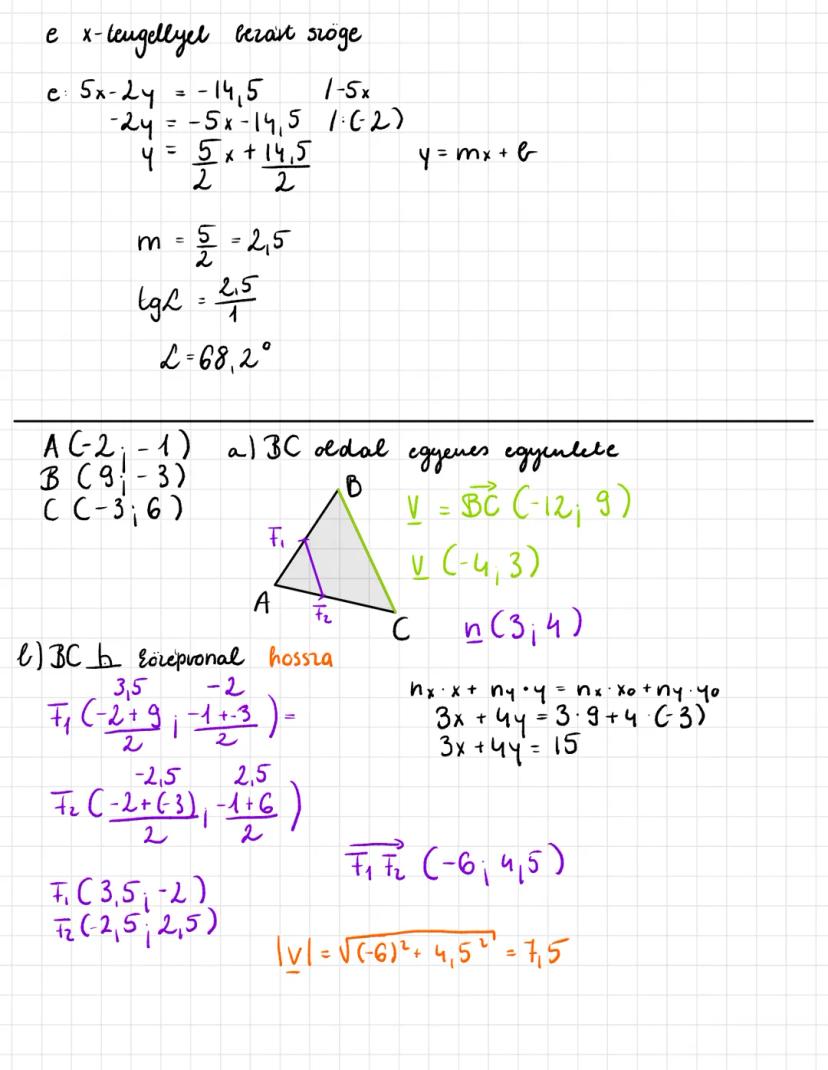 e x-tengellyel bezárt szöge
e: 5x-2y = -14,5 /-5x
-2y = -5x-14,5 /:(-2)
y = 5/2 x + 14,5/2 y = mx + b
m = 5/2 = 2,5
tgα = 2,5/1
α = 68,2°
A (-2; -1) a) BC oldal egyenes egyenlete
B (9; -3)
C (-3; 6)
B
v = BC→ (-12; 9)
F₁
v (-4; 3)
A
F₂
C
n (3; 4)
b) BC h középvonal hossza
3,5 -2
F₁ (-2+9/2 ; -1+-3/2) =
nx·x + ny·y = nx·x₀ + ny·y₀
3x + 4y = 3·9 + 4·(-3)
3x + 4y = 15
-2,5 2,5
F₂ (-2+(-3)/2 ; -1+6/2)
F₁F₂→ (-6; 4,5)
F₁ (3,5; -2)
F₂ (-2,5; 2,5)
|v| = √((-6)² + 4,5²) = 7,5